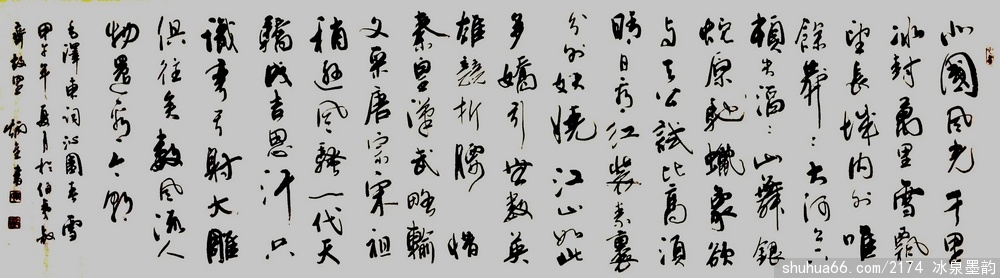 北國風光千里
冰封萬里雪飄
望長城內外唯
餘莽〻大河上下
頓失滔〻山舞銀
蛇原馳蠟象欲
与天公試比高須
晴日看红裝素裹
分外妖嬈江山如此
多嬌引無數英
雄競折腰惜
秦皇漢武略輸
文采唐宗宋祖
稍遜風騷一代天
驕成吉思汗只
識彎弓射大雕
俱往矣數風流人
物還看今朝
毛澤東詞沁園春雪
甲午年夏月於伯夷叔
齊故里 書
shuhua66.com/2174 冰泉墨韵